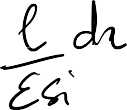 l/εsi dr